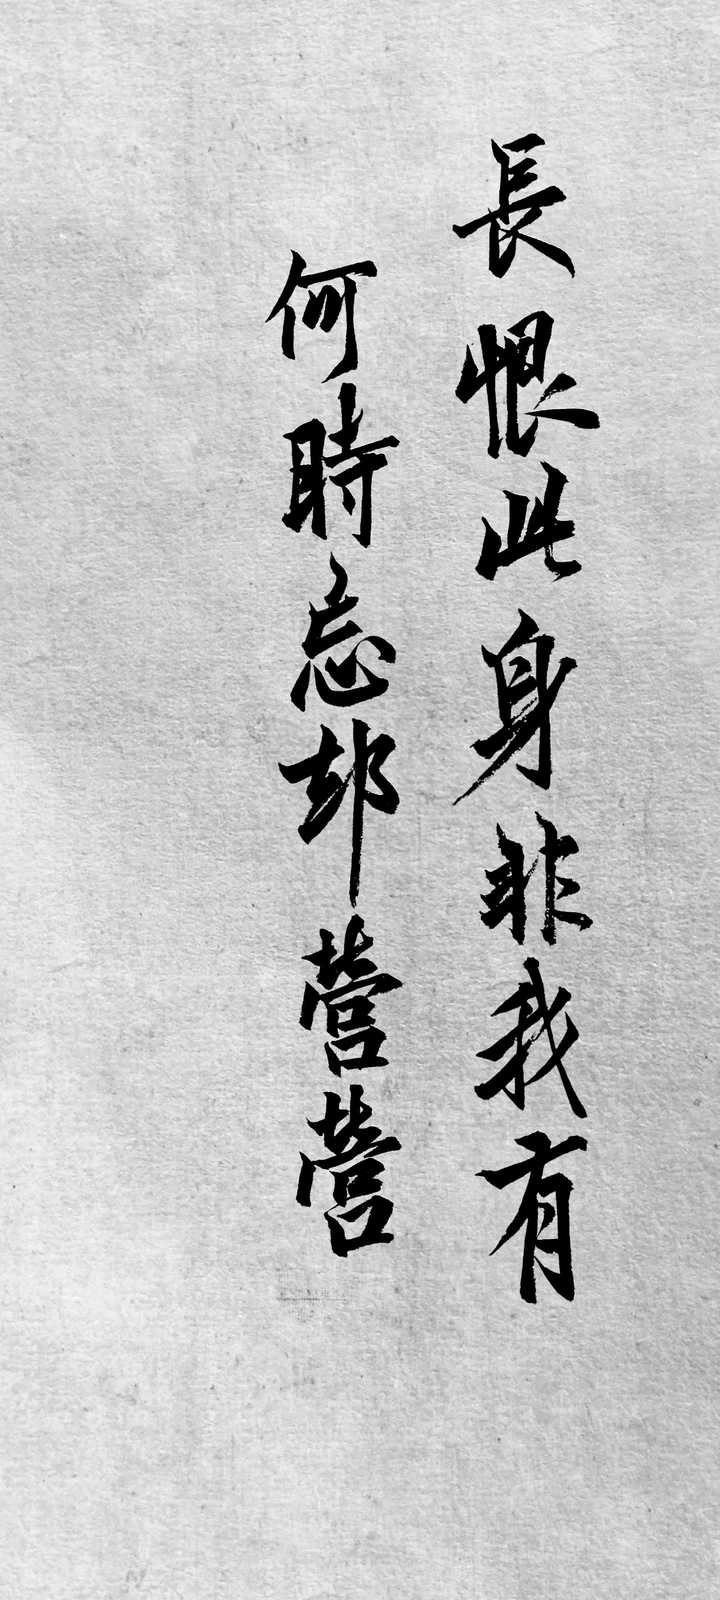 長恨此身非我有
何時忘却營營